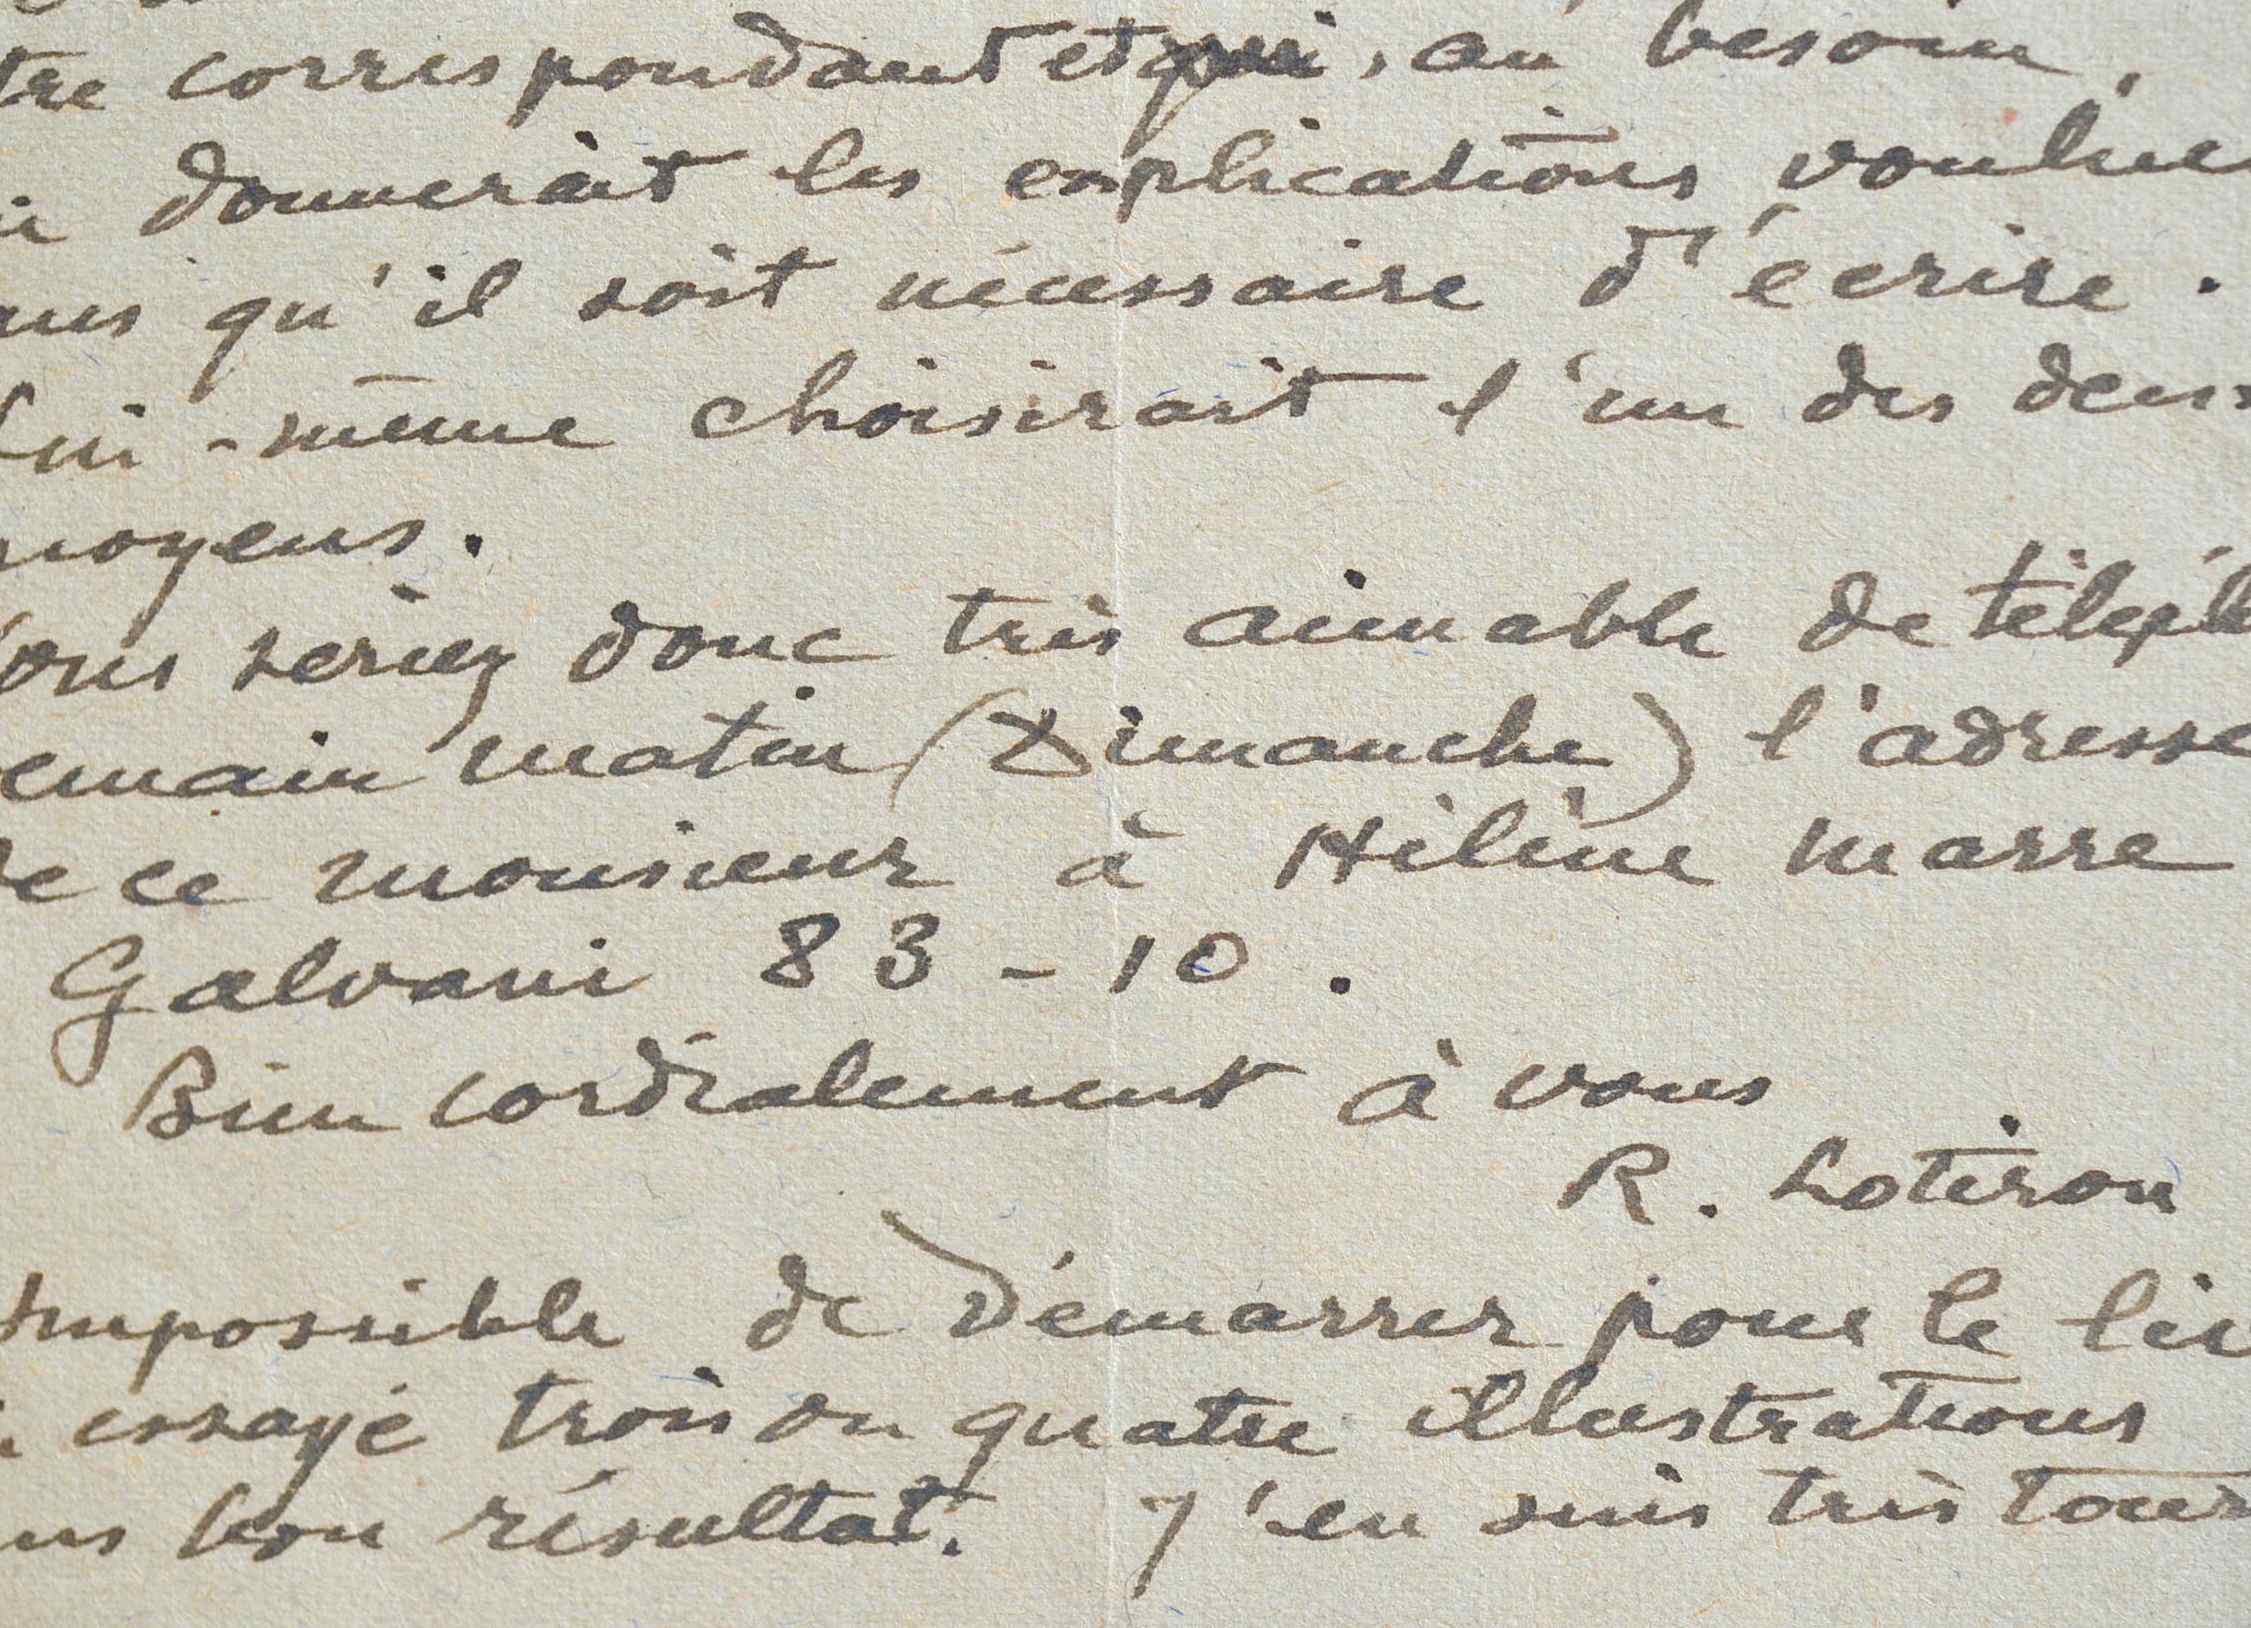 tre correspondant et qui, au besoin,
donnerait les explications voulues
ans qu'il soit nécessaire d'écrire.
Lui-même choisirait l'un des deux
moyens.
Vous seriez donc très aimable de téléph
emain matin (Dimanche) l'adresse
de ce monsieur à Hélène Marre
Galvani 83-10.
Bien cordialement à vous
R. Lotiron
Impossible de démarrer pour le liv
essayé trois ou quatre illustrations
ns bon résultat. J'en suis très tour